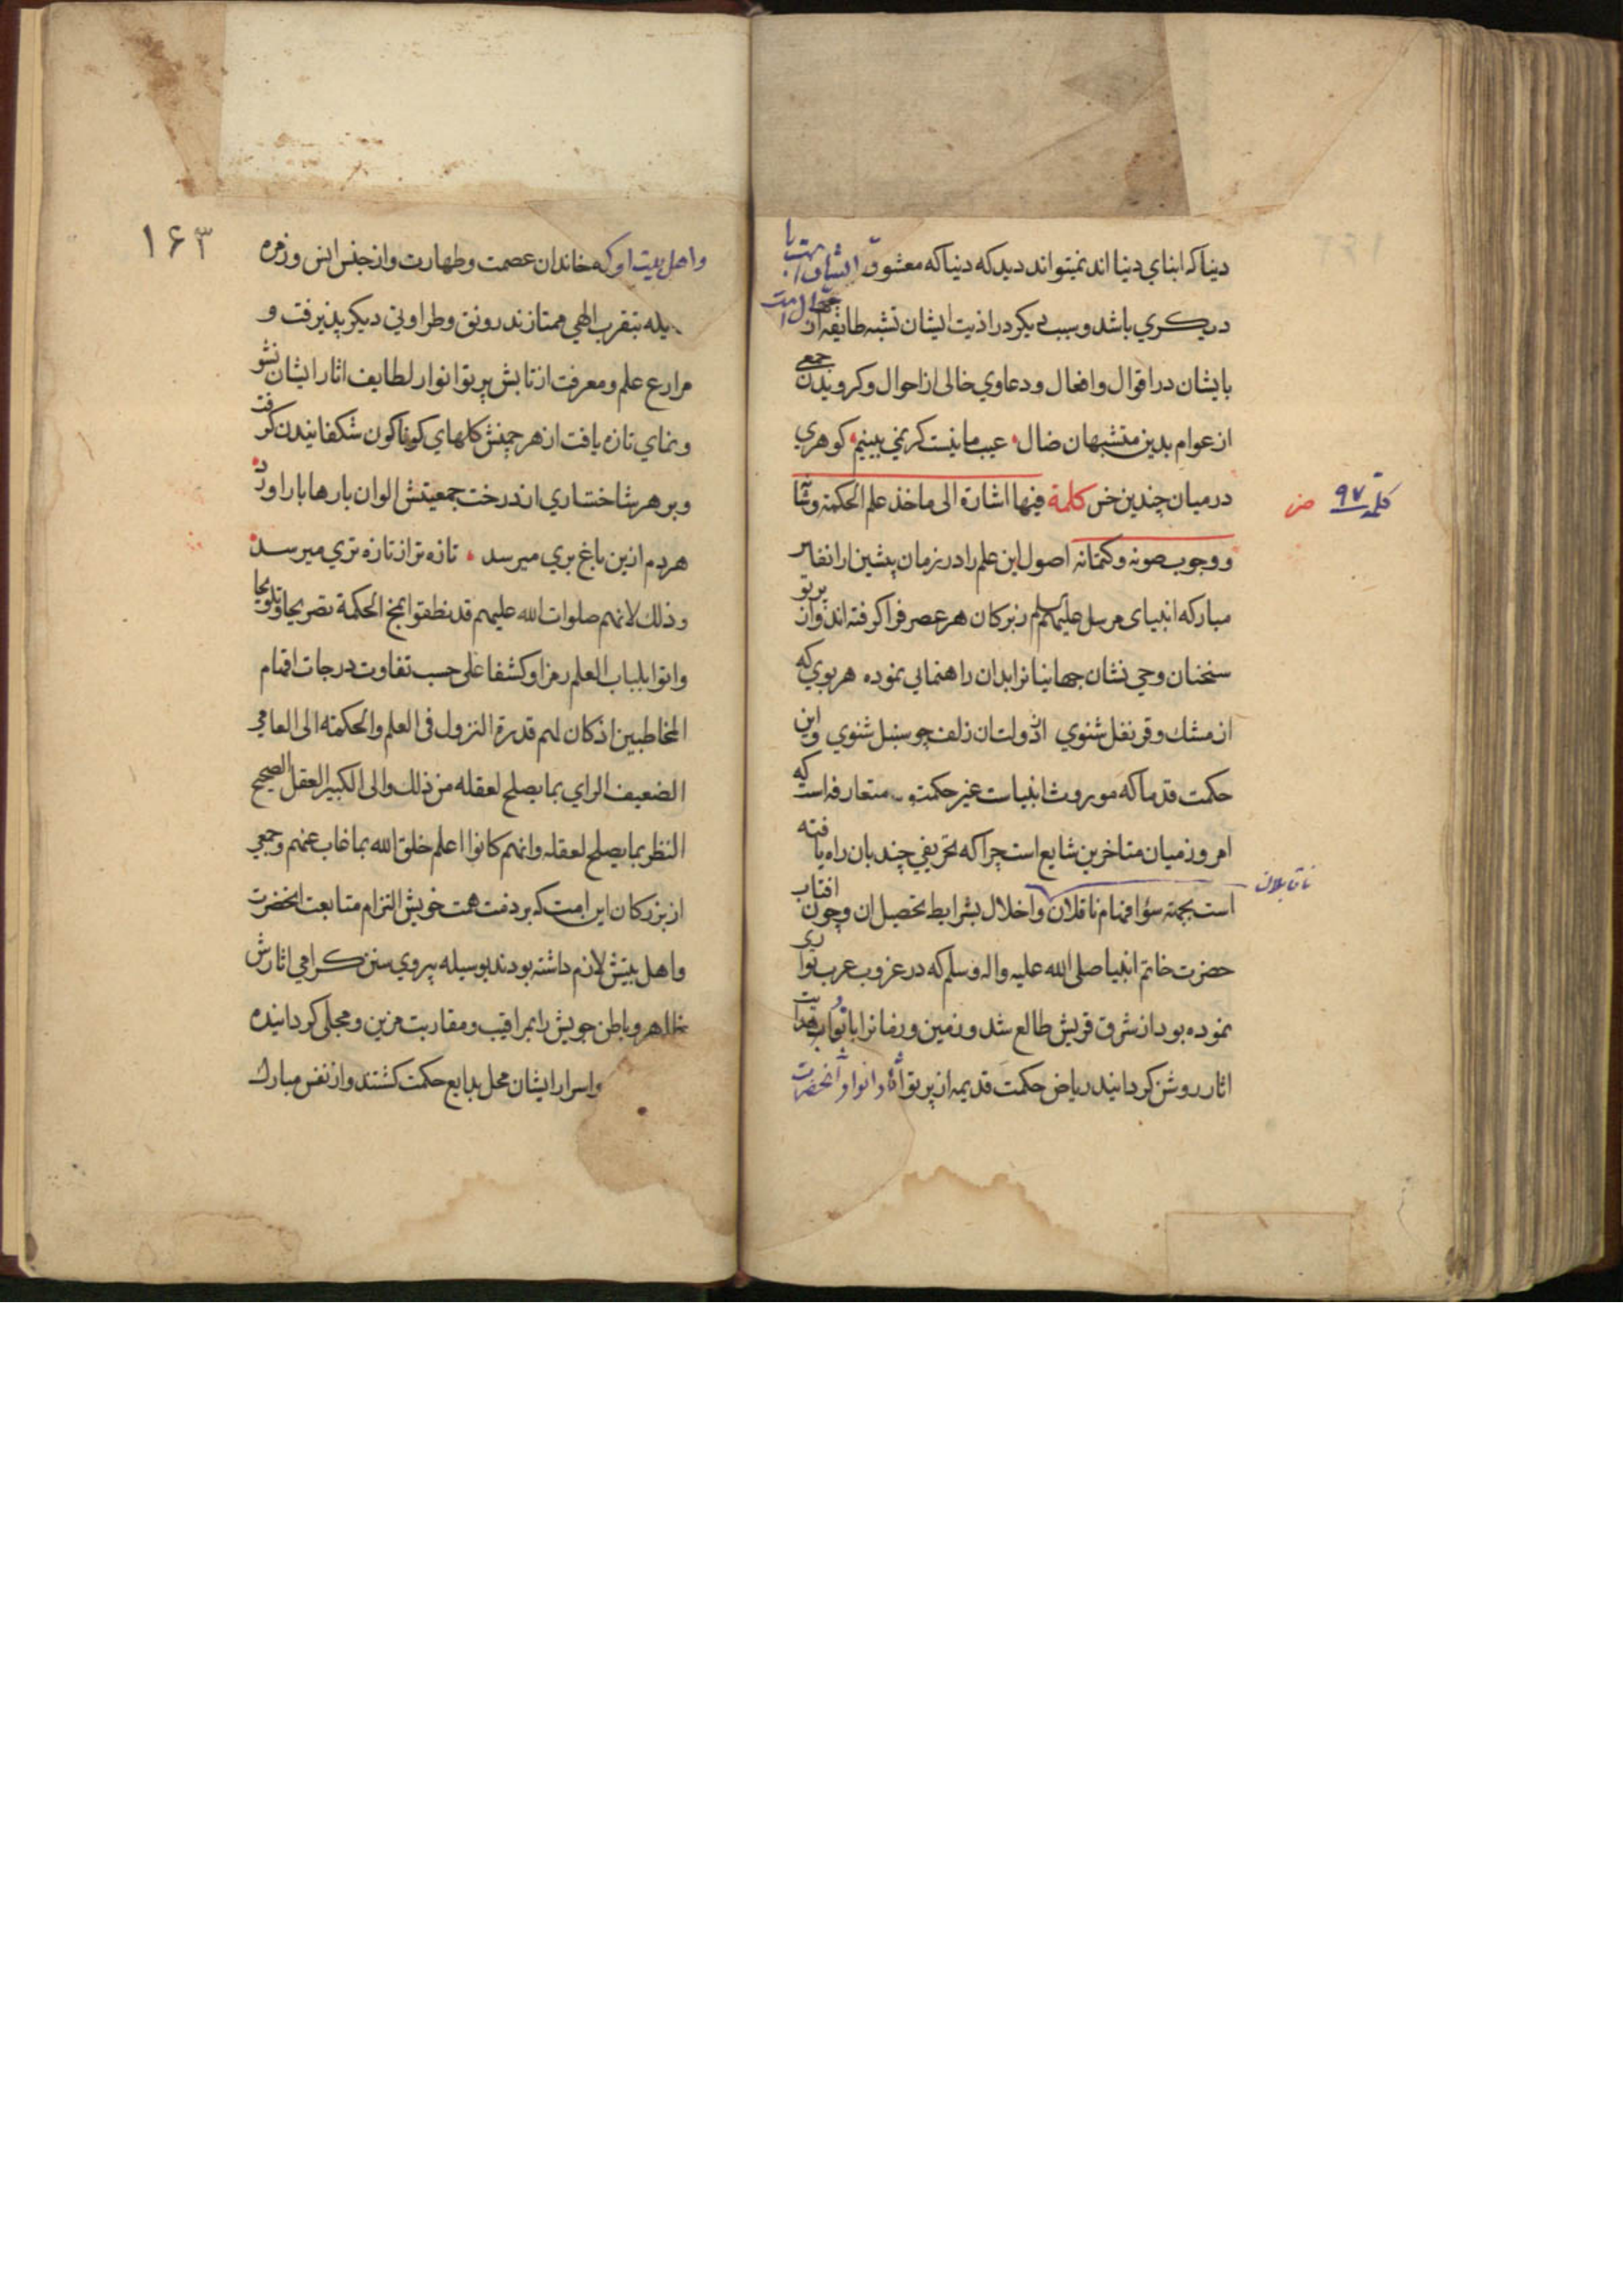 دنیا که ابنای دنیا اند نمیتواند دید که دنیا که معشوق ایشان است با
دیگری باشد و سبب دیگر در اذیت ایشان تشبه طایفه از
بایشان در اقوال و افعال و دعاوی خالی از احوال و گرویدن جمعی
از عوام بدین متشبهان ضال عیب ما نیست گر نمی بینیم گوهری
در میان چندین خس کلمة فیها اشارة الی ماخذ علم الحکمة و
کلمه ۹۷
و وجوب صونه و کتمانه اصول این علم را در زمان پیشین از انفاس
مبارکه انبیای مرسل علیهم السلم بزرکان هر عصر فرا کرفته اند و از پرتو
سخنان وحی نشان جهانیانرا بدان راهنمایی نموده هر بوی که
از مشک و قرنفل شنوی از دولت ان زلف چو سنبل شنوی و این
حکمت قدما که موروث انبیاست غیر حکمت متعارفه است که
امروز میان متاخرین شایع است چرا که تحریفی چند بان راه یافته
ناقابلان
است بجهة سؤ افهام ناقلان و اخلال بشرایط تحصیل ان و چون افتاب
حضرت خاتم انبیا صلی الله علیه و اله و سلم که در غروب عرب تواری
نموده بود از شرق قریش طالع شد و زمین و زمانرا بانوار هدایت
اثار روشن کردانید ریاض حکمت قدیمه از پرتو آثار و انوار آنحضرت
۱۶۳
و اهل بیت او که خاندان عصمت و طهارت و از جنس انس و زمره
بتقرب الهی ممتازند رونق و طراوتی دیکر پذیرفت و
مزارع علم و معرفت از تابش پرتو انوار لطایف اثار ایشان نشو
و نمای تازه یافت از هر چمنش کلهای کوناکون شکفانیدن کرفت
و بر هر شاخساری از درخت جمعیتش الوان بارها بار اورد
هر دم ازین باغ بری میرسد تازه تر از تازه تری میرسد
و ذلک لانهم صلوات الله علیهم قد نطقوا بمخ الحکمة تصریحا و تلویحا
و اتوا بلباب العلم رمزا و کشفا علی حسب تفاوت درجات افهام
المخاطبین اذ کان لهم قدرة النزول فی العلم والحکمة الی العامی
الضعیف الرای بما یصلح لعقله من ذلک والی الکبیر العقل الصحیح
النظر بما یصلح لعقله و انهم کانوا اعلم خلق الله بما غاب عنهم و جمعی
از بزرکان این امت که بر ذمت همت خویش التزام متابعت انحضرت
و اهل بیتش لازم داشته بودند بوسیله پیروی سنن کرامی اثارش
ظاهر و باطن خویش را بمراقبت و مقاربت مزین و محلی کردانیده
و اسرار ایشان محل بدایع حکمت کشتند و از نفس مبارک